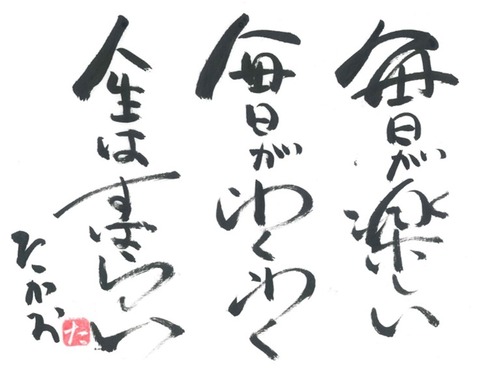 毎日が楽しい
毎日がわくわく
人生はすばらしい
たかお
た